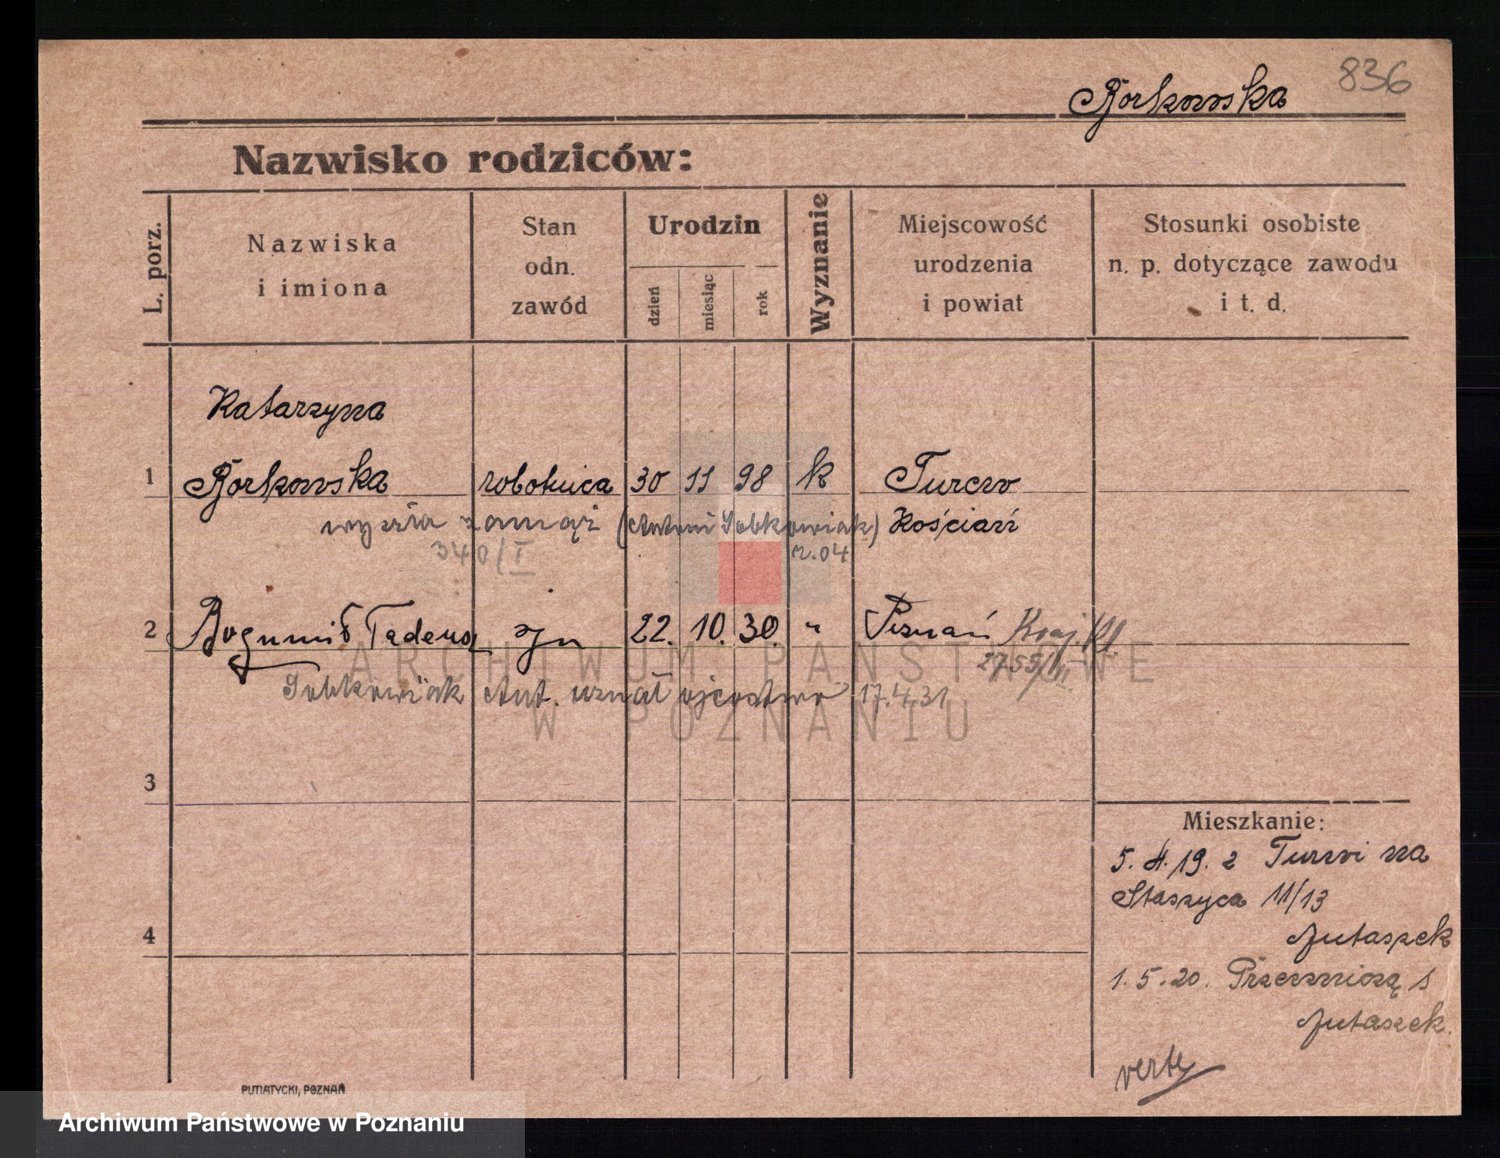 836
Borkowska
Nazwisko rodziców:
L. porz.
Nazwiska
i imiona
Stan
odn.
zawód
Urodzin
dzień
miesiąc
rok
Wyznanie
Miejscowość
urodzenia
i powiat
Stosunki osobiste
n. p. dotyczące zawodu
i t. d.
Katarzyna
1 Borkowska robotnica 30 11 98 k Turew
wyszła zamąż (Antoni Sobkowiak) Kościan
340/I 2.04
2 Bogumił Tadeusz syn 22. 10. 30. " Poznań
2755/
Sobkowiak Ant. uznał ojcostwo 17.4.31
ARCHIWUM PAŃSTWOWE
W POZNANIU
3
4
Mieszkanie:
5. 4. 19. z Turwi na
Staszyca 11/13
Jutaszek
1. 5. 20.
Jutaszek.
verte
PUTIATYCKI, POZNAŃ
Archiwum Państwowe w Poznaniu